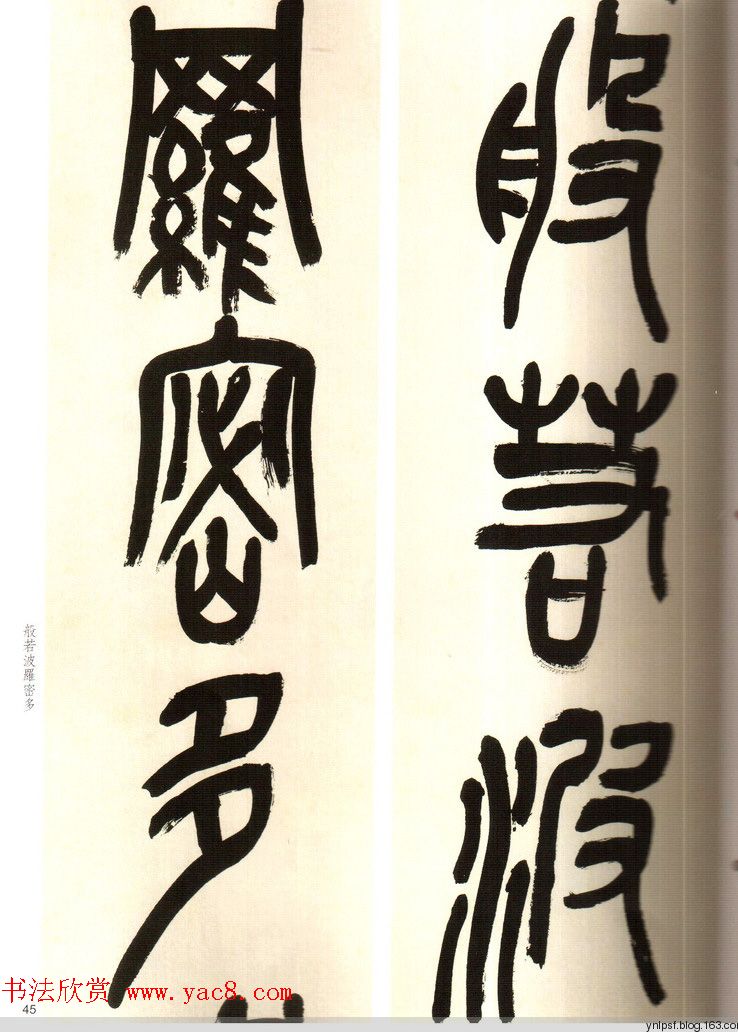 般若波
羅密多
般若波羅密多
书法欣赏 www.yac8.com
45
ynlpsf.blog.163.co